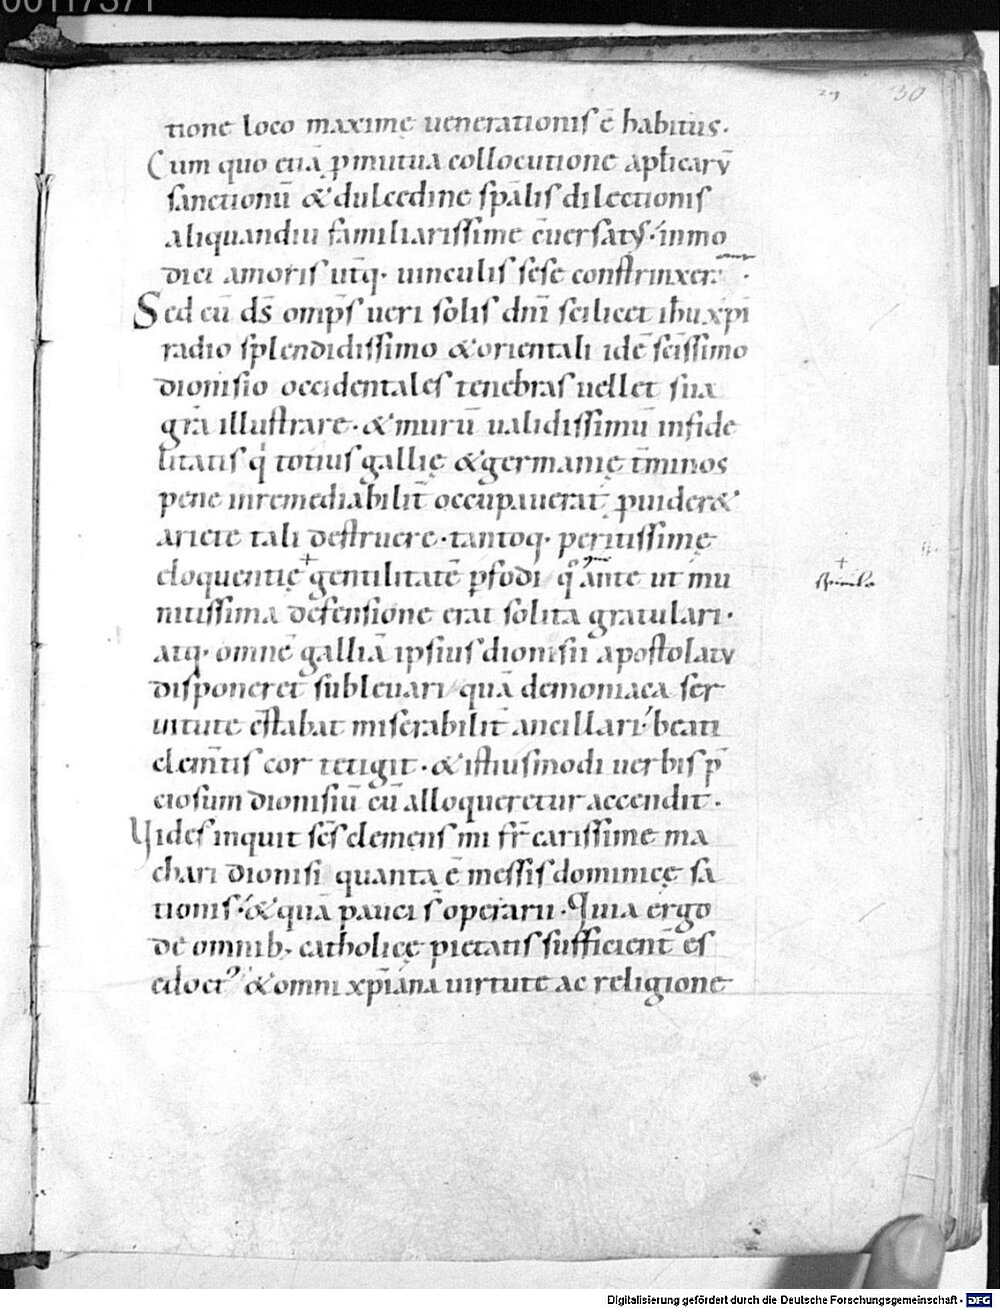 00117371
29 30
tione loco maximę uenerationis ē habitus.
Cum quo etiā ꝑ mutua collocutione apłicarū
sanctionū & dulcedine sp̄alis dilectionis
aliquandiu familiarissime c̄uersatꝰ. inmo
dici amoris utq̄. uinculis sese constrinxer̄.
Sed cū d̄s omp̄s ueri solis dn̄i scilicet ihu xp̄i
radio splendidissimo & orientali idē sc̄issimo
dionisio occidentales tenebras uellet sua
grā illustrare. & murū ualidissimū infide
litatis qͥ totius gallię & germanię t̄minos
pene inremediabilit̄ occupauerat, ꝓuider&
ariete tali destruere. tantoq. peritissimę
eloquentię + gentilitatē ꝑfodi qͣ ante ut mu
nitissima defensione erat solita gratulari.
atq. omnē galliā ipsius dionisii apostolatu
disponeret subleuari quā demoniaca ser
uitute c̄stabat miserabilit̄ ancillari; beati
clem̄tis cor tetigit. & istiusmodi uerbis p̄
ciosum dionisiū cū alloqueretur accendit.
Vides inquit sc̄s clemens mi fr̄ carissime ma
chari dionisi quanta ē messis dominicę sa
tionis; & quā pauci s̄ operarii. Quia ergo
de omnib; catholicę pietatis sufficient̄ es
edoctꝰ & omni xp̄iana uirtute ac religione
+
Digitalisierung gefördert durch die Deutsche Forschungsgemeinschaft - DFG